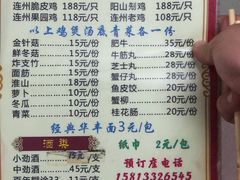 连州脆皮鸡 188元/只 阳山剔鸡 118元/只
连州鸡 108元/只 连州老鸡 108元/只
以上鸡煲汤底青菜各一份
金针菇 15元/份 肥牛 35元/份
鲜冬菇 15元/份 牛筋丸 元/份
炸支竹 15元/份 芝士丸 元/份
面筋 15元/份 蟹丸 元/份
淮山 10元/份 鱼皮饺 元/份
萝卜 10元/份 鱼饺 20元/份
冬瓜 10元/份 蟹柳 20元/份
青菜 10元/份 桂花肠 20元/份
经典华丰面3元/包
酒类 纸巾 2元/包
小劲酒 元/ 预订座电话
中劲酒 45元/ 15813326545